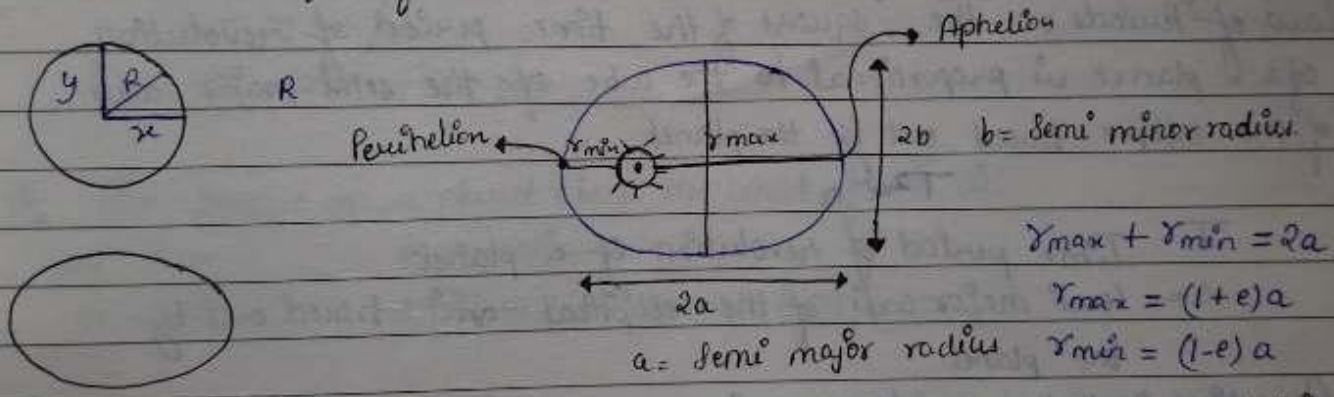 Aphelion
y R R
x
Perihelion rmin rmax 2b b = Semi minor radius.
rmax + rmin = 2a
2a rmax = (1+e)a
a = Semi major radius rmin = (1-e)a